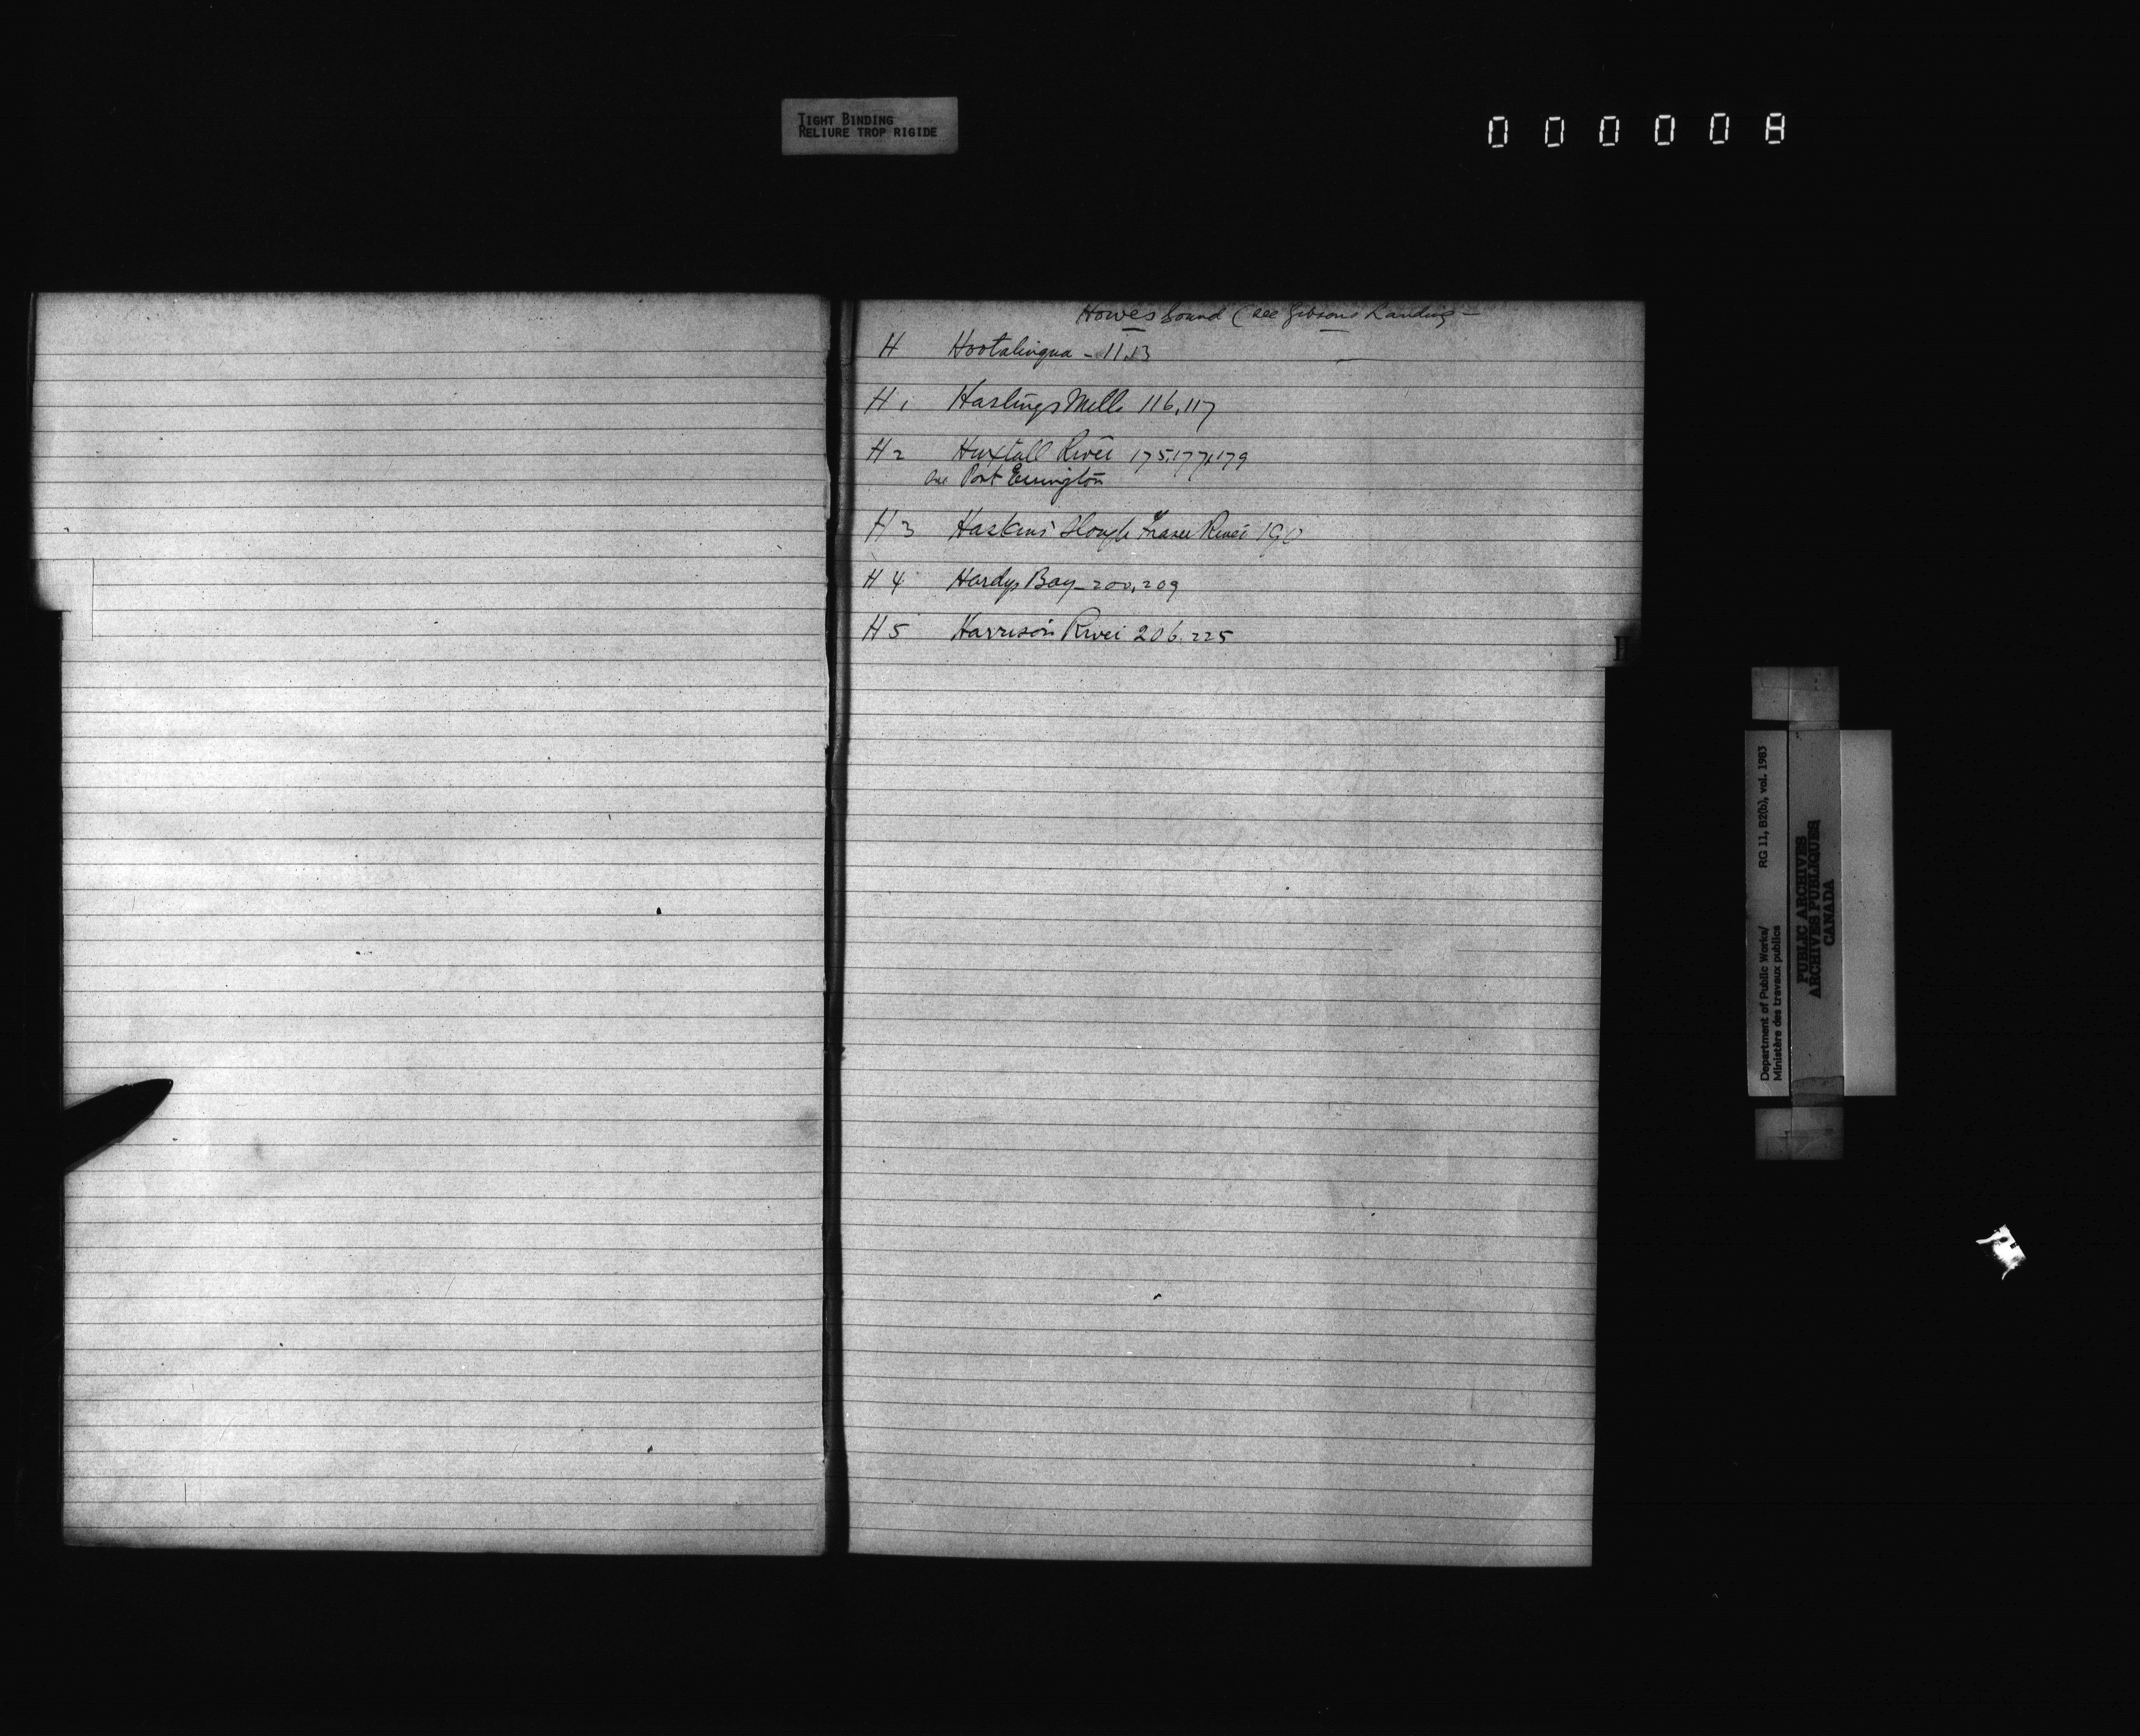 TIGHT BINDING
RELIURE TROP RIGIDE
000008
Howes Sound (see Gibsons Landing -
H Hootalinqua - 11.13
H 1 Hastings Mills 116,117
H 2 River 175,177,179
see Port Essington
H 3 Haskins' Slough Fraser River 190
H 4 Hardys Bay - 200,209
H 5 Harrison River 206.225
H
Department of Public Works/ RG 11, B2(b), vol. 1983
Ministère des travaux publics
PUBLIC ARCHIVES
ARCHIVES PUBLIQUES
CANADA